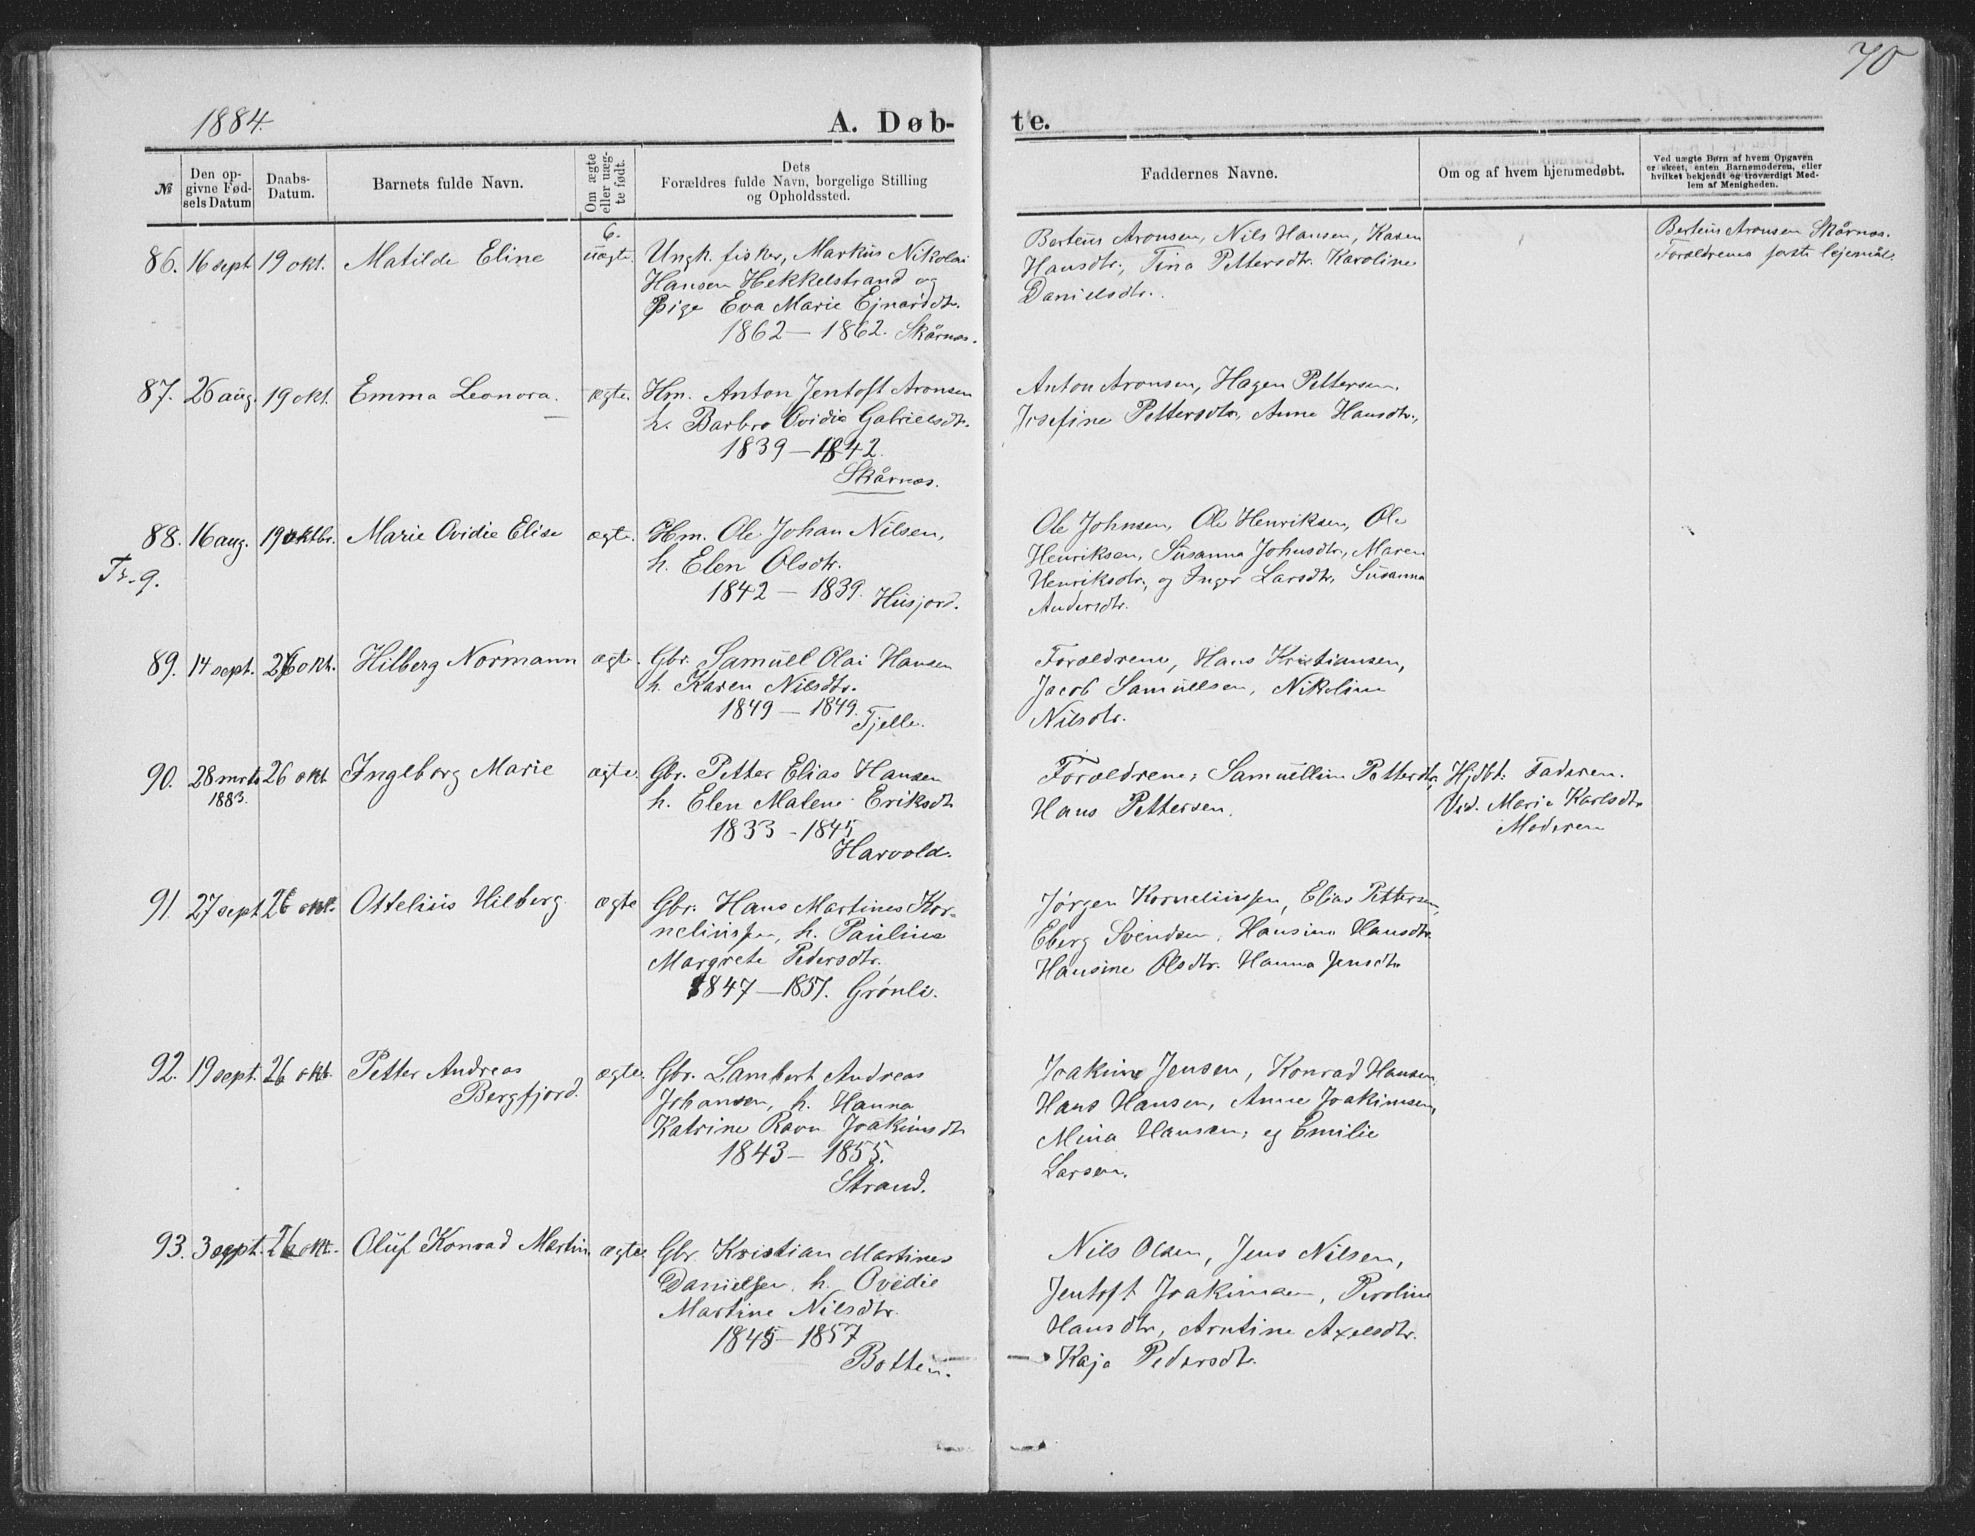 70
1884.
A. Døb-
te.
№
Den op-
givne Fød-
sels Datum
Daabs-
Datum.
Barnets fulde Navn.
Om ægte
eller uæg-
te født.
Dets
Forældres fulde Navn, borgelige Stilling
og Opholdssted.
Faddernes Navne.
Om og af hvem hjemmedøbt.
Ved uægte Børn af hvem Opgaven
er skeet, enten Barnemoderen, eller
hvilket bekjendt og troværdigt Med-
lem af Menigheden.
6.
86. 16 sept 19 okt. Matilde Eline uægte.
Ungk. fisker, Markus Nikolai
Hansen Hekkelstrand og
Pige Eva Marie Ejnarsdtr.
1862 – 1862. Skårnes.
Berteus Aronsen, Nils Hansen, Karen
Hansdtr., Tina Pettersdtr. Karoline
Danielsdtr.
Berteus Aronsen Skårnes.
Forældrenes første lejemål.
87. 26 aug. 19 okt. Emma Leonora. ægte.
Hm. Anton Jentoft Aronsen
h. Barbro Ovidie Gabrielsdtr.
1839 – 1842.
Skårnes.
Anton Aronsen, Hagen Pettersen,
Josefine Pettersdtr., Anne Hansdtr.,
88. 16 aug. 19 oktbr. Marie Ovidie Elise ægte.
Tr. 9.
Hm. Ole Johan Nilsen,
h. Elen Olsdtr.
1842 – 1839. Husjord.
Ole Johnsen, Ole Henriksen, Ole
Henriksen, Susanna Johnsdtr., Maren
Henriksdtr., og Inger Larsdtr. Susanna
Andersdtr.
89. 14 sept. 26 okt. Hilberg Normann ægte.
Gbr. Samuel Olai Hansen
h. Karen Nilsdtr.
1849 – 1849. Fjelle.
Forældrene, Hans Kristiansen,
Jacob Samuelsen, Nikoline
Nilsdtr.
90. 28 mrts 26 okt Ingeborg Marie ægte.
1883.
Gbr. Petter Elias Hansen
h. Elen Malene Eriksdtr
1833 - 1845
Harvold.
Forældrene, Samuelline Pettersdtr,
Hans Pettersen.
Hjdbt. Faderen.
Vid. Marie Karlsdtr
Moderen
91. 27 sept 26 okt. Ottelius Hilberg ægte
Gbr. Hans Martines Kor-
neliussen, h. Pauline
Margrete Pedersdtr.
1847 – 1851. Grønli.
Jørgen Korneliussen, Elias Pettersen,
Eberg Svendsen, Hansine Hansdtr
Hansine Olsdtr. Hanna Jensdtr
92. 19 sept. 26 okt. Petter Andreas ægte
Bergfjord.
Gbr. Lambert Andreas
Johansen, h. Hanna
Katrine Ravn Joakimsdtr
1843 – 1855.
Strand.
Joakim Jensen, Konrad Hansen,
Hans Hansen, Anne Joakimsen,
Mina Hansen, og Emilie
Larsen.
93. 3 sept. 26 okt. Oluf Konrad Martin ægte
Gbr. Kristian Martines
Danielsen, h. Ovedie
Martine Nilsdtr.
1845 – 1857
Botten.
Nils Olsen, Jens Nilsen,
Jentoft Joakimsen, Peroline
Hansdtr, Arntine Axelsdtr.
Kaja Pedersdtr.